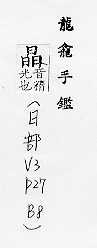 龍龕手鑑
晶 音精
光也
(日部
V3
P27
B8)